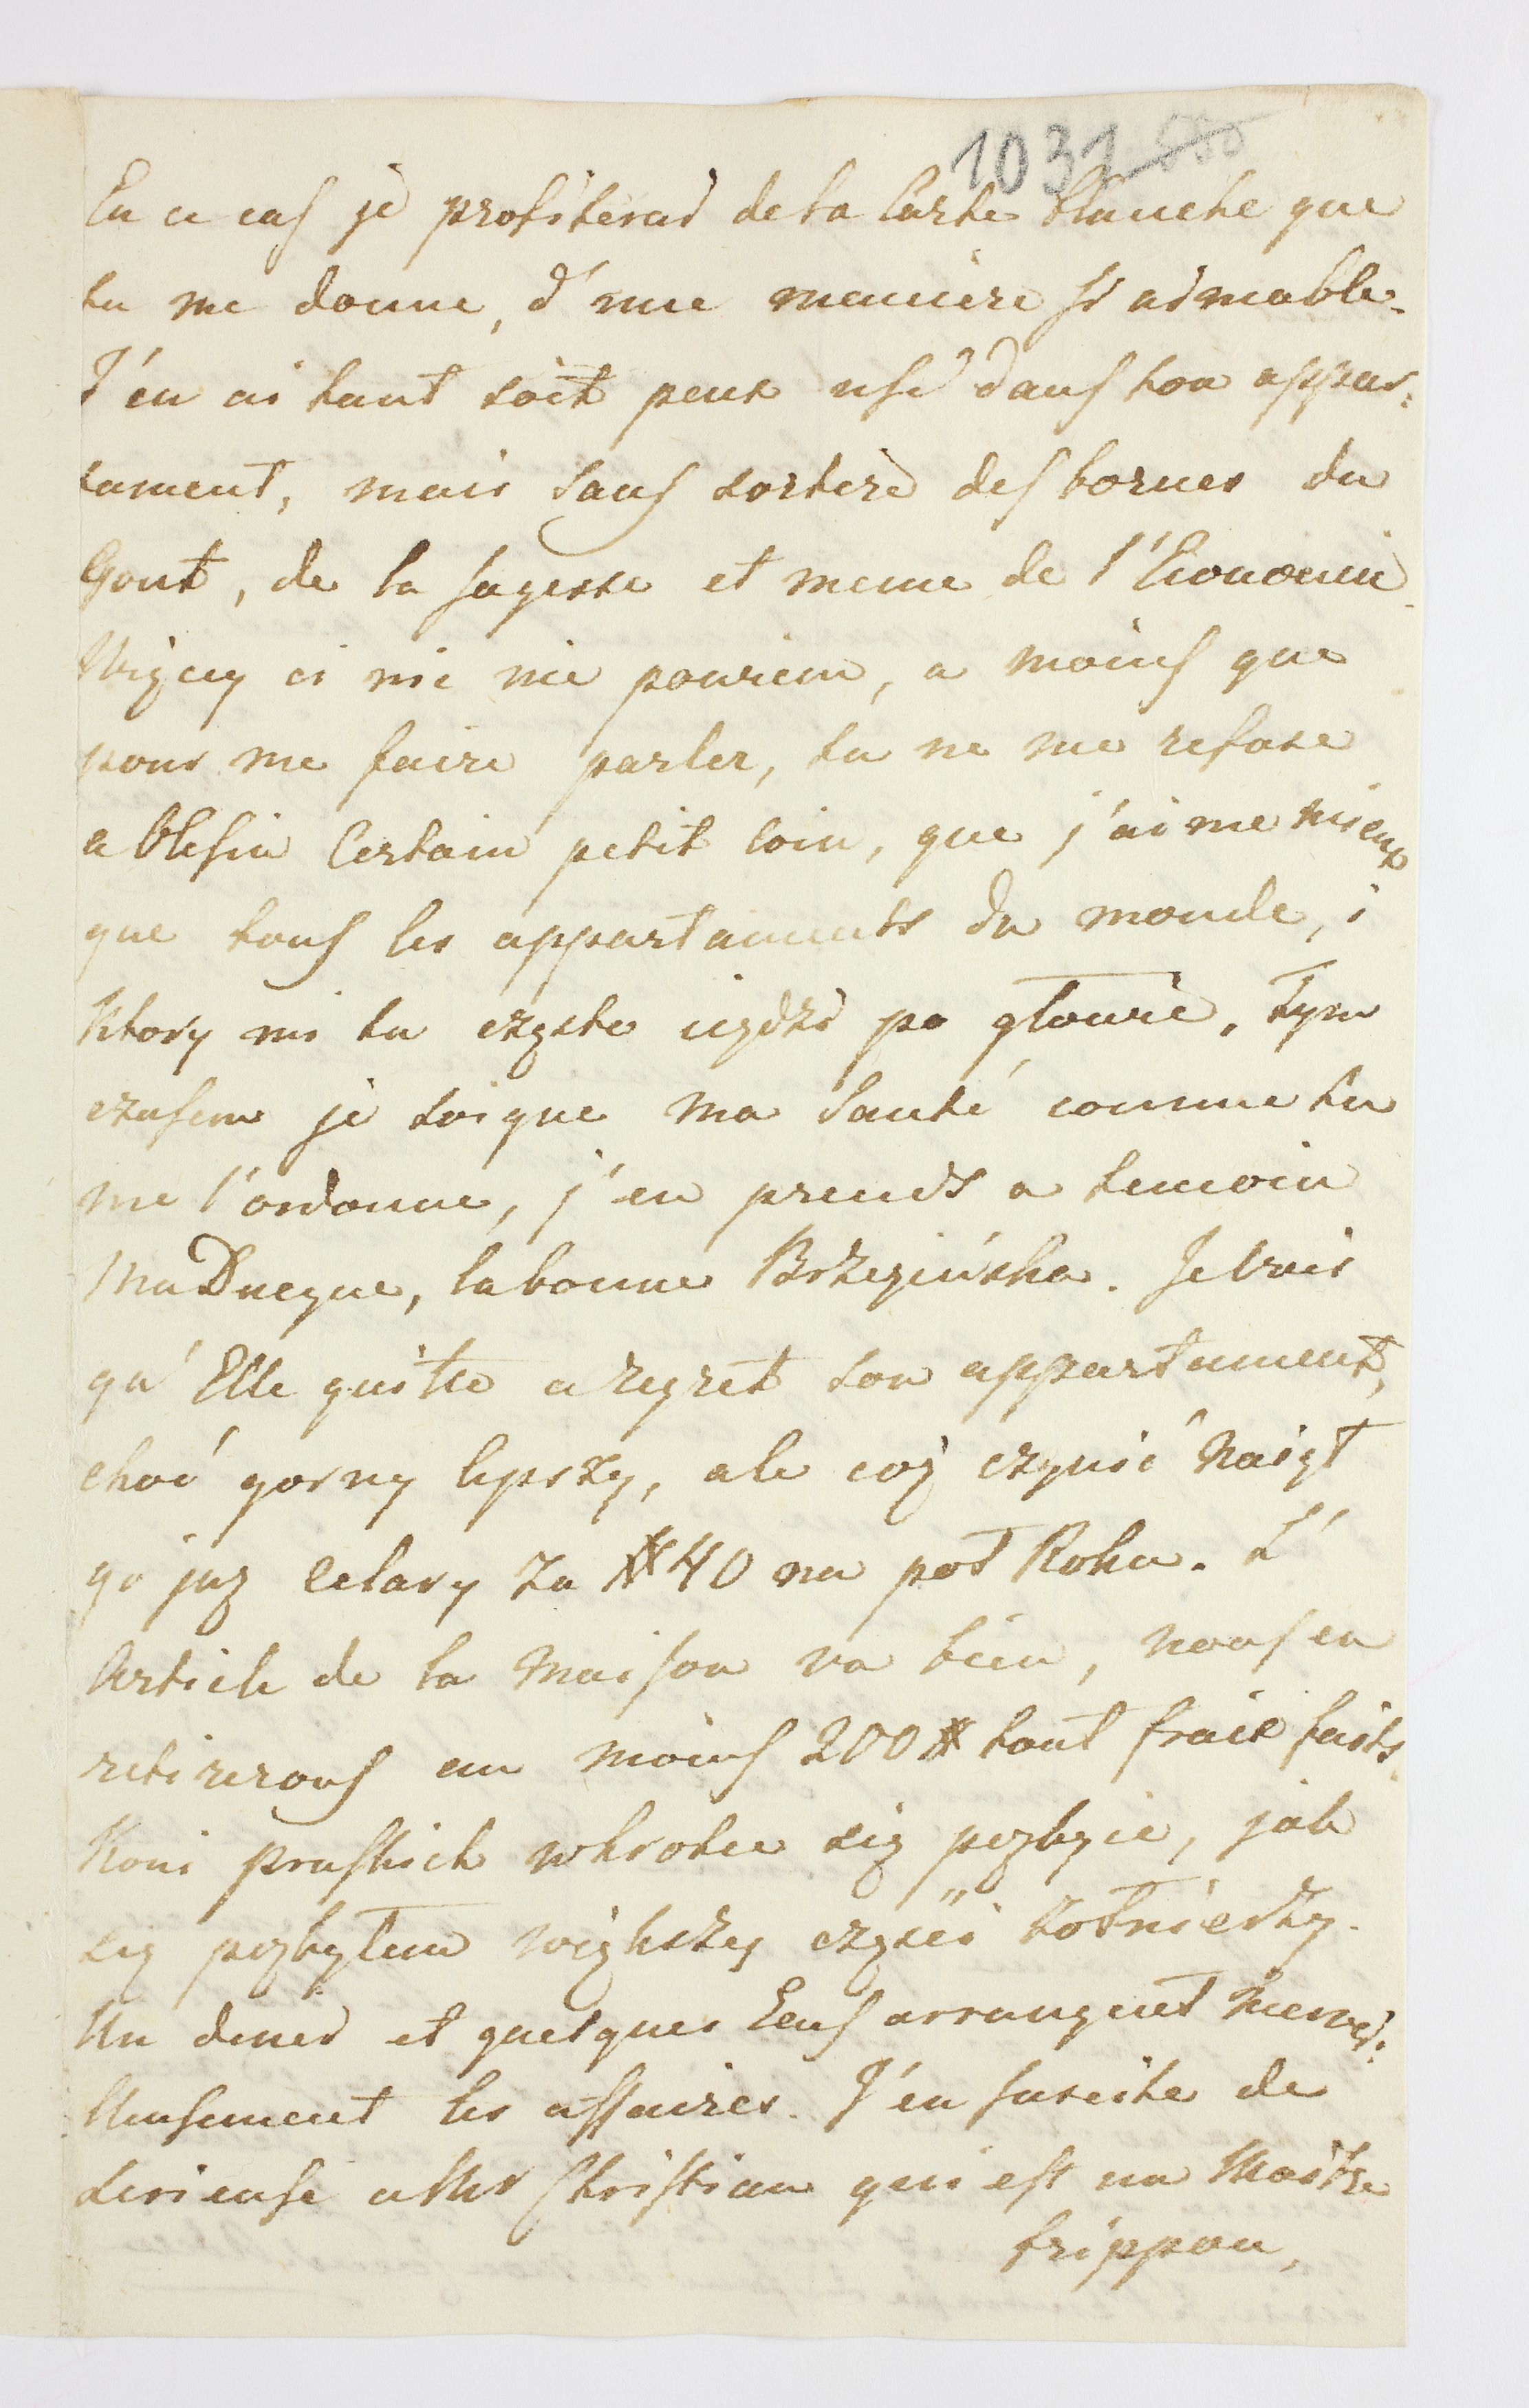 1031 550
En ce cas je profiterai de la Carte blanche que
tu me donne, d'une maniere si aimable.
J'en ai tant soit peux usé dans ton appar:
tament, mais sans sortire des bornes du
Gout, de la sagesse et meme de l'Economie.
Więcy ci nic nie powiem, a moins que
pour me faire parler, tu ne me refuse
a Olesin Certain petit coin, que j'aime mieux
que tous les appartaments du monde, i
Ktory mi tu czysto iezdzi po głowie. Tym
czasem je soigne ma Santé comme tu
me l'ordonne, j'en prends a temoin
Ma Duegne, la bonne Brzezińska. Je vois
qu'Elle quitte a regret son appartament,
choć gorny lepszy, ale coż czynić Naiął
go juz Celary za # 40 na poł Roku. L'
Article de la Maison va bien, nous en
retirerons au moins 200 # tout frais faits.
Koni pruskich wkrotce się pozbycie, jak
się pozbyłem większey częsci żołnierzy.
Un diner et quelques Ecus arrangent merve:
lleusement les affaires. J'en suscite de
serieuse a Mr Christian qui est un Maitre
frippon,